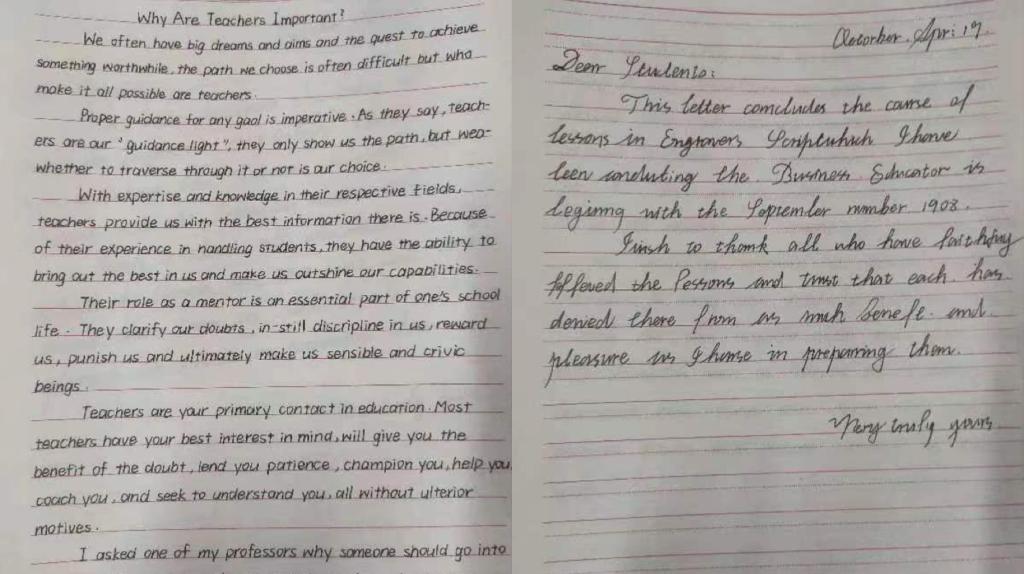 Why Are Teachers Important?
We often have big dreams and aims and the quest to achieve
something worthwhile, the path we choose is often difficult but who
make it all possible are teachers.
Proper guidance for any goal is imperative. As they say, teach-
ers are our "guidance light", they only show us the path, but wea-
whether to traverse through it or not is our choice.
With expertise and knowledge in their respective fields,
teachers provide us with the best information there is. Because
of their experience in handling students, they have the ability to
bring out the best in us and make us outshine our capabilities.
Their role as a mentor is an essential part of one's school
life. They clarify our doubts, in-still discripline in us, reward
us, punish us and ultimately make us sensible and crivic
beings.
Teachers are your primary contact in education. Most
teachers have your best interest in mind, will give you the
benefit of the doubt, lend you patience, champion you, help you
coach you, and seek to understand you, all without ulterior
motives.
I asked one of my professors why someone should go into
Apri 19.
Dear Students:
This letter concludes the course of
lessons in Engravers Scriptwhich I have
been conducting the Business Educator is
with the number 1908.
to thank all who have
the and trust that each has
there from as much and
pleasure as I have in preparing them.
Very truly yours